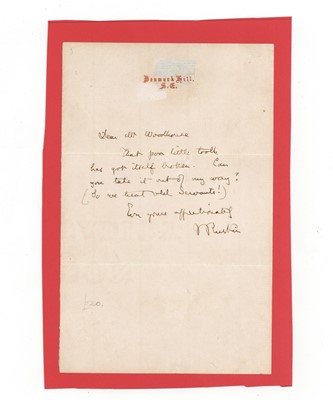 Denmark Hill.
S.E.
Dear Mr Woodhouse
That poor little tooth
has got itself broken. Can
you take it out of my way?
(So we treat old Servants!)
Ever yours affectionately
J Ruskin